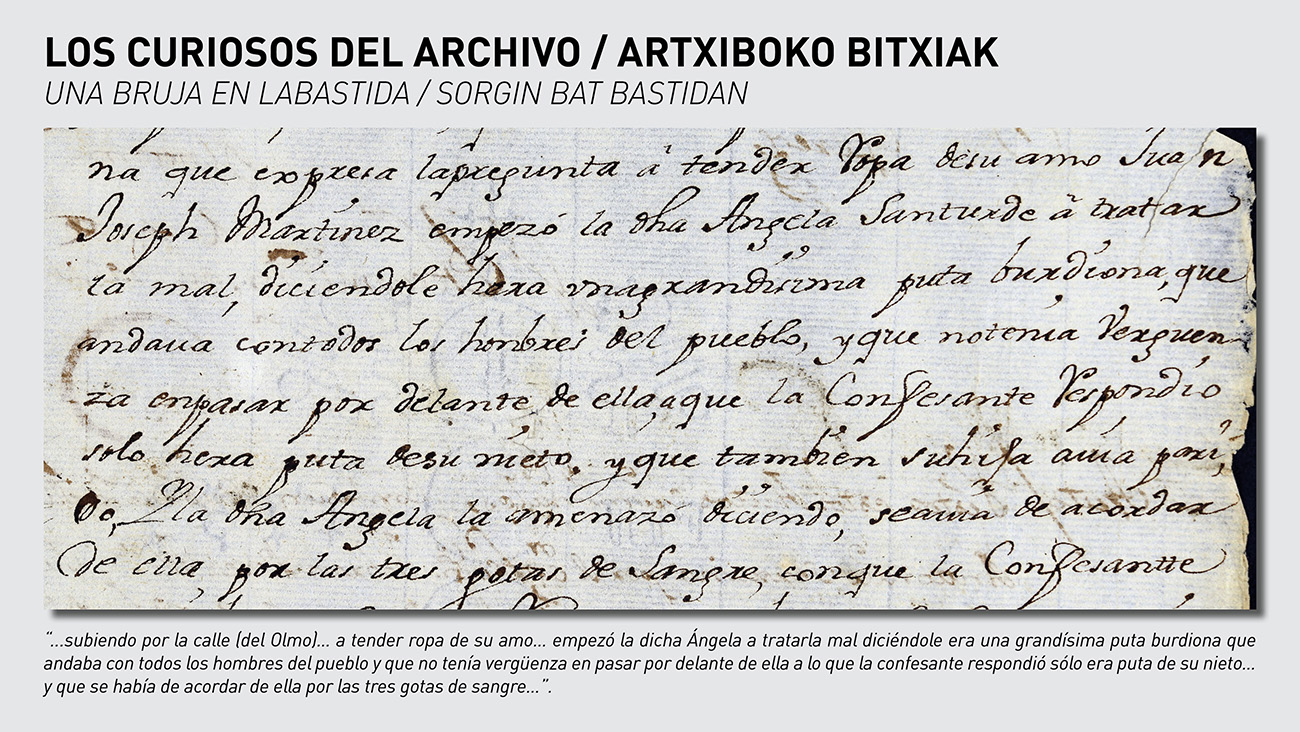 LOS CURIOSOS DEL ARCHIVO / ARTXIBOKO BITXIAK
UNA BRUJA EN LABASTIDA / SORGIN BAT BASTIDAN
na que expresa lapregunta â tender Ropa desu amo Juan
Joseph Martinez empezó la dha Angela Santurde â tratar
la mal, diciendole hera vnagrandisima puta burdiona, que
andaua contodos los honbres del pueblo, yque notenia Verguen
za enpasar por delante de ella, aque la Confesante Respondio
solo hera puta desu nieto, yque tambien suhija auia pari,
do, Yla dha Angela la amenazó diciendo, seauia de acordar
de ella, por las tres gotas de Sangre, conque la Confesantte
“...subiendo por la calle (del Olmo)... a tender ropa de su amo... empezó la dicha Ángela a tratarla mal diciéndole era una grandísima puta burdiona que
andaba con todos los hombres del pueblo y que no tenía vergüenza en pasar por delante de ella a lo que la confesante respondió sólo era puta de su nieto...
y que se había de acordar de ella por las tres gotas de sangre...”.